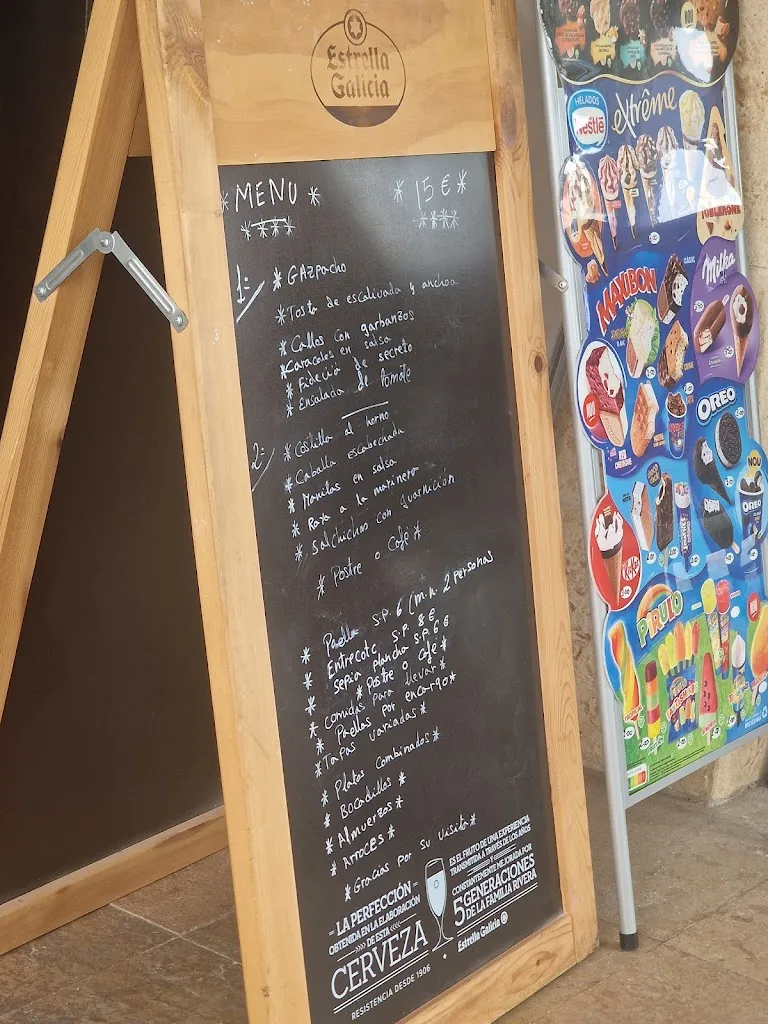 Estrella
Galicia
* MENU * * 15 € *
****  ****
1=
* GAZPACHO
* Tosta de escalivada y anchoa
* Callos con garbanzos
* Caracoles en salsa
* Fideua de secreto
* Ensalada de tomate
2=
* Costilla al horno
* Caballa escabechada
* Manitas en salsa
* Raya a la marinera
* Salchichas con guarnición
* Postre o Café *
* Paella S.P. 6 (min. 2 personas
* Entrecote S.P. 8 €
* Sepia plancha S.P. 6 €
* Postre o café *
* Comidas para llevar *
* Paellas por encargo *
* Tapas variadas *
* Platos combinados *
* Bocadillos *
* Almuerzos *
* Arroces *
* Gracias por su visita *
LA PERFECCIÓN
OBTENIDA EN LA ELABORACIÓN
DE ESTA
CERVEZA
RESISTENCIA DESDE 1906
ES EL FRUTO DE UNA EXPERIENCIA
TRANSMITIDA A TRAVÉS DE LOS AÑOS
Y
CONSTANTEMENTE MEJORADA POR
5 GENERACIONES
DE LA FAMILIA RIVERA
Estrella Galicia
HELADOS
Nestlé
extrême
TOBLERONE
Milka
MAXIBON
OREO
NOU
OREO
KitKat
PIRULO